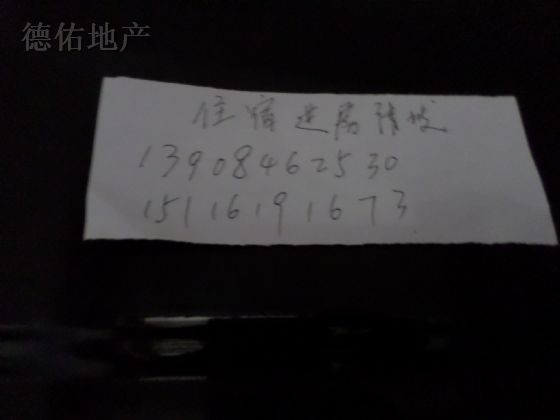 德佑地产
住宿进房请拨
13908462530
15116191673